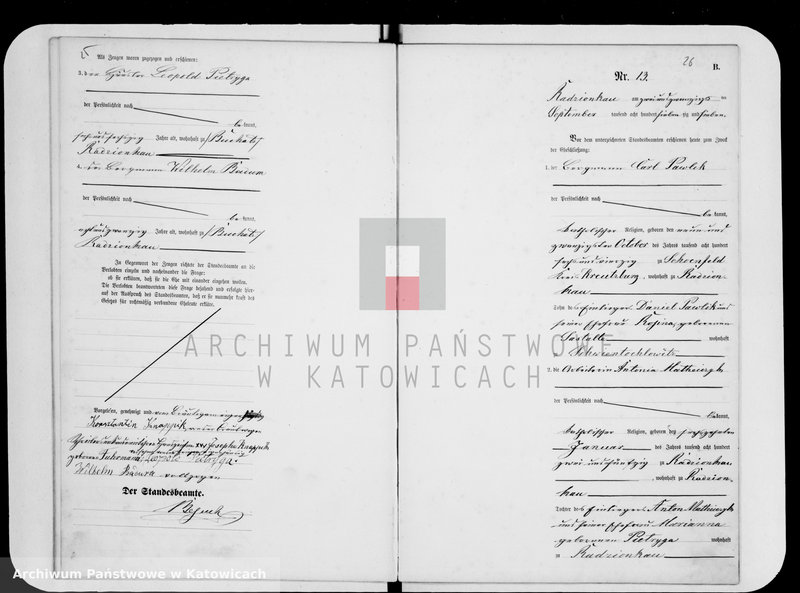 Als Zeugen waren zugezogen und erschienen:
3. der Häusler Leopold Pietryga
der Persönlichkeit nach
be kannt,
sechsundsechzig Jahre alt, wohnhaft zu /Buchatz/
Radzionkau
4. der Bergmann Wilhelm
der Persönlichkeit nach
be kannt,
Jahre alt, wohnhaft zu /Buchatz/
Radzionkau
In Gegenwart der Zeugen richtete der Standesbeamte an die
Verlobten einzeln und nacheinander die Frage:
ob sie erklären, daß sie die Ehe mit einander eingehen wollen.
Die Verlobten beantworteten diese Frage bejahend und erfolgte hier-
auf der Ausspruch des Standesbeamten, daß er sie nunmehr kraft des
Gesetzes für rechtmäßig verbundene Eheleute erkläre.
Vorgelesen, genehmigt und vom Bräutigam
Konstantin
Handzeichen xxx Josepha
geborene Leopold Pietryga
Wilhelm vollzogen
Der Standesbeamte.
26
B.
Nr. 13.
Radzionkau am zweiundzwanzigsten
September tausend acht hundert sieben zig und sieben.
Vor dem unterzeichneten Standesbeamten erschienen heute zum Zweck
der Eheschließung:
1. der Bergmann Carl Pawlik
der Persönlichkeit nach
be kannt,
katholischer Religion, geboren den neun und
zwanzigsten October des Jahres tausend acht hundert
sechsundvierzig zu Schoenfeld
Kreis Kreutzburg, wohnhaft zu Radzion-
kau
Sohn des Einlieger Daniel Pawlik und
seiner Ehefrau Rosina, geborenen
wohnhaft
zu Schwientochlowitz
2. die Arbeiterin Antonia
der Persönlichkeit nach
bekannt,
katholischer Religion, geboren den sechszehnten
Januar des Jahres tausend acht hundert
zwei und fünfzig zu Radzionkau
, wohnhaft zu Radzion-
kau
Tochter des Einlieger Anton
und seiner Ehefrau Marianna
geborenen Pietryga wohnhaft
zu Radzionkau
ARCHIWUM PAŃSTWOWE
W KATOWICACH
Archiwum Państwowe w Katowicach